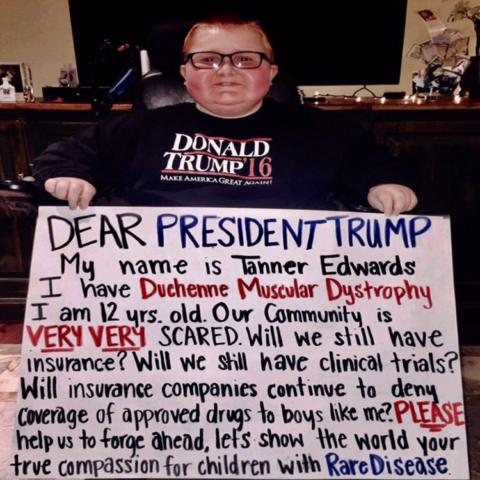 DONALD
TRUMP '16
MAKE AMERICA GREAT AGAIN!
DEAR PRESIDENT TRUMP
My name is Tanner Edwards
I have Duchenne Muscular Dystrophy
I am 12 yrs. old. Our Community is
VERY VERY SCARED. Will we still have
insurance? Will we still have clinical trials?
Will insurance companies continue to deny
coverage of approved drugs to boys like me? PLEASE
help us to forge ahead, let's show the world your
true compassion for children with Rare Disease.